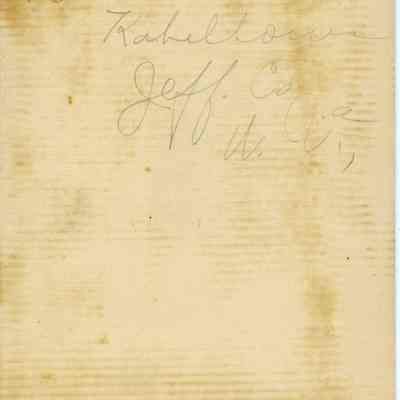 Kabeltown
Jeff. Co
W. Va,